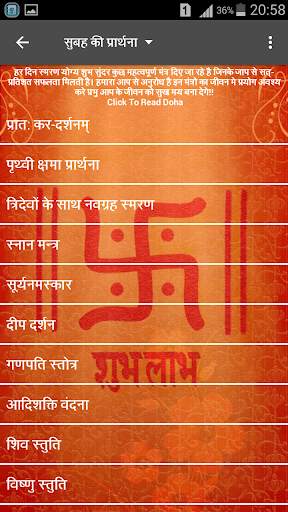 36% 20:58
सुबह की प्रार्थना
हर दिन स्मरण योग्य शुभ सुंदर कुछ महत्वपूर्ण मंत्र दिए जा रहे है जिनके जाप से सत्-
प्रतिशत सफलता मिलती है। हमारा आप से अनुरोध है इन मंत्रो का जीवन मे प्रयोग अवश्य
करे प्रभु आप के जीवन को सुख मय बना देगे!!
Click To Read Doha
प्रात: कर-दर्शनम्
पृथ्वी क्षमा प्रार्थना
त्रिदेवों के साथ नवग्रह स्मरण
स्नान मन्त्र
सूर्यनमस्कार
दीप दर्शन
गणपति स्तोत्र
शुभ लाभ
आदिशक्ति वंदना
शिव स्तुति
विष्णु स्तुति